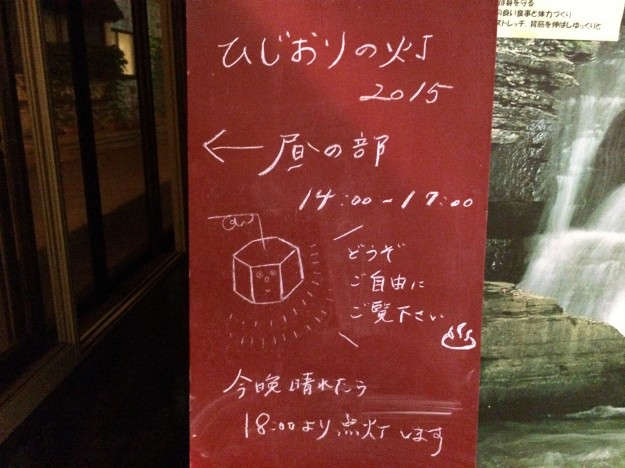 自身を守る
の良い食事と体力づくり
ストレッチ、背筋を伸ばしゆっくりと
ひじおりの灯
2015
← 昼の部
14:00~17:00
どうぞ
ご自由に
ご覧下さい
♨
今晩晴れたら
18:00より点灯します